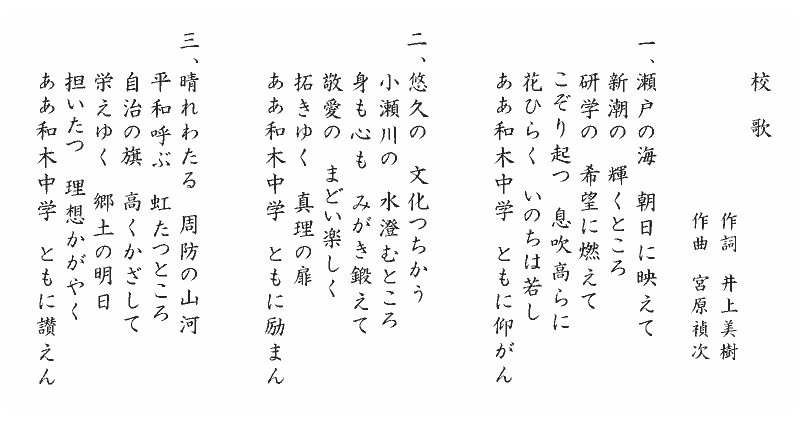 校歌
作詞　井上美樹
作曲　宮原禎次
一、瀬戸の海　朝日に映えて
新潮の　輝くところ
研学の　希望に燃えて
こぞり起つ　息吹高らに
花ひらく　いのちは若し
ああ和木中学　ともに仰がん
二、悠久の　文化つちかう
小瀬川の　水澄むところ
身も心も　みがき鍛えて
敬愛の　まどい楽しく
拓きゆく　真理の扉
ああ和木中学　ともに励まん
三、晴れわたる　周防の山河
平和呼ぶ　虹たつところ
自治の旗　高くかざして
栄えゆく　郷土の明日
担いたつ　理想かがやく
ああ和木中学　ともに讃えん